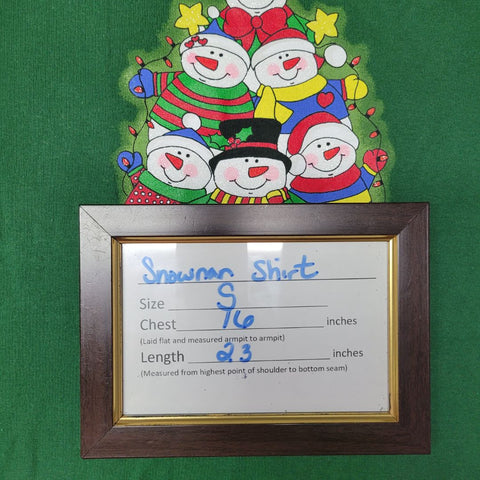 Snowman Shirt
Size S
Chest 16 inches
(Laid flat and measured armpit to armpit)
Length 23 inches
(Measured from highest point of shoulder to bottom seam)